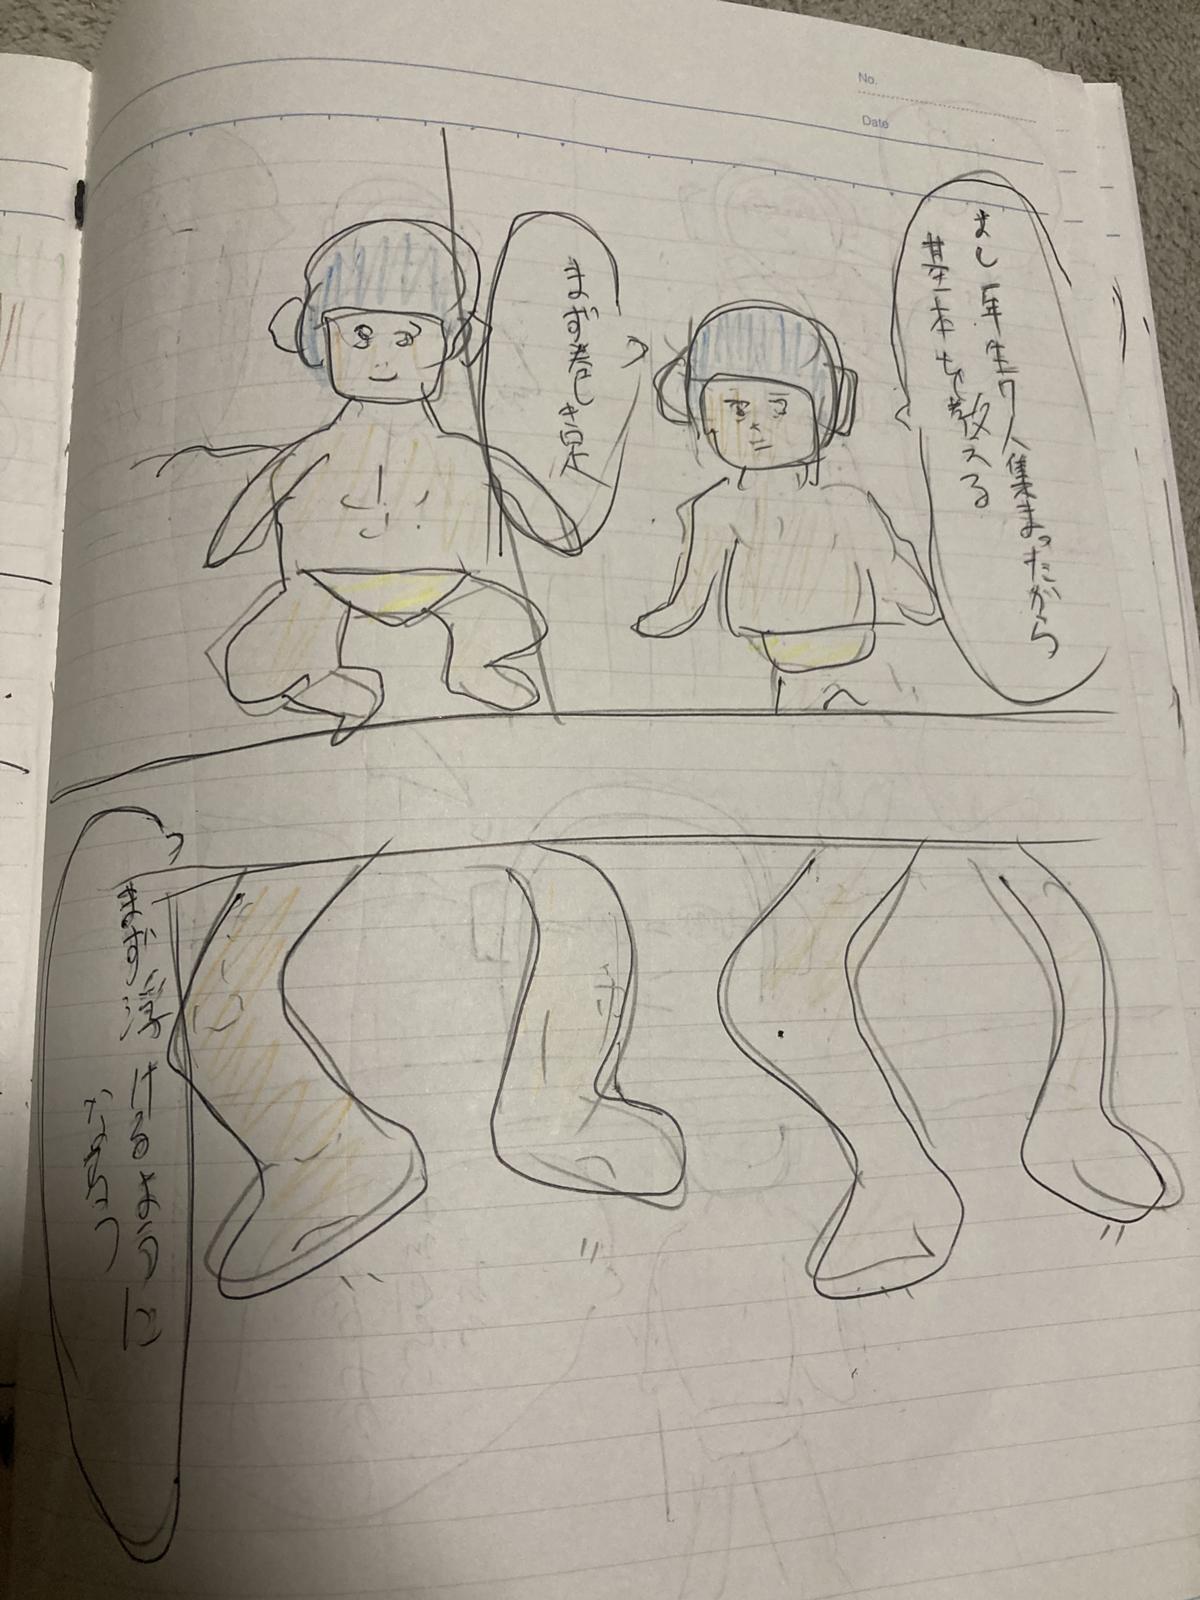 No.
Date
よし一年生7人集まったから
基本を教える
まず巻き足
まず浮けるように
なろう